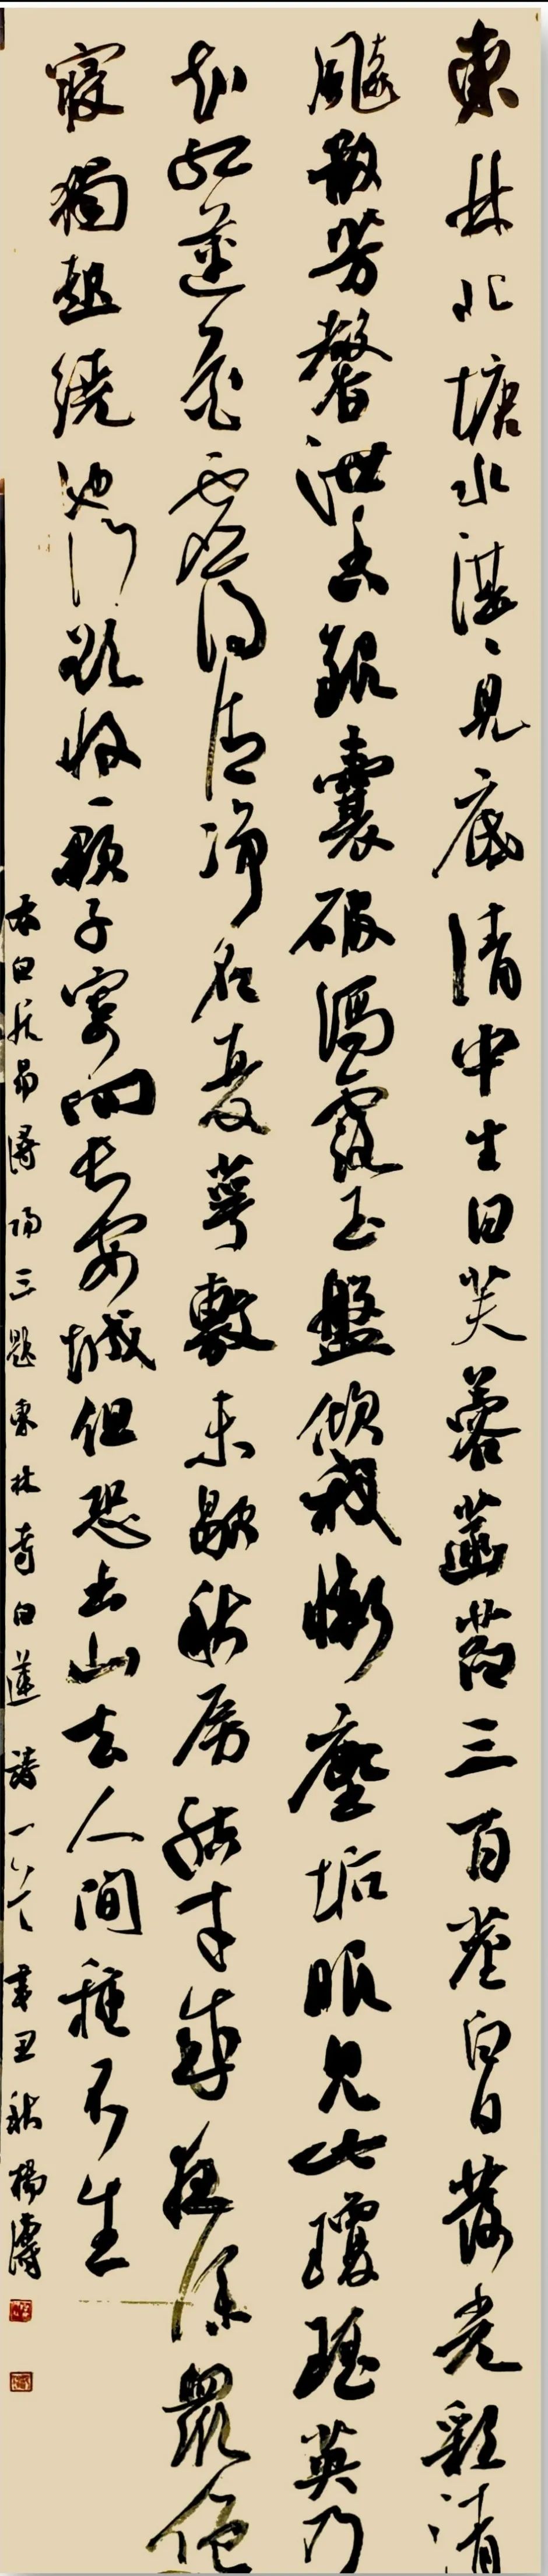 東林北塘水湛〻見底清中生白芙蓉菡萏三百莖白日發光彩清
飈散芳馨泄香銀囊破瀉露玉盤傾我慚塵垢眼見此瓊瑤英乃
知紅蓮花虛得清淨名夏萼敷未歇秋房結才成夜深眾僧
寢獨起繞池行欲收一顆子寄向長安城但恐出山去人間種不生
右白居易潯陽三題東林寺白蓮詩一首辛丑秋楊濤